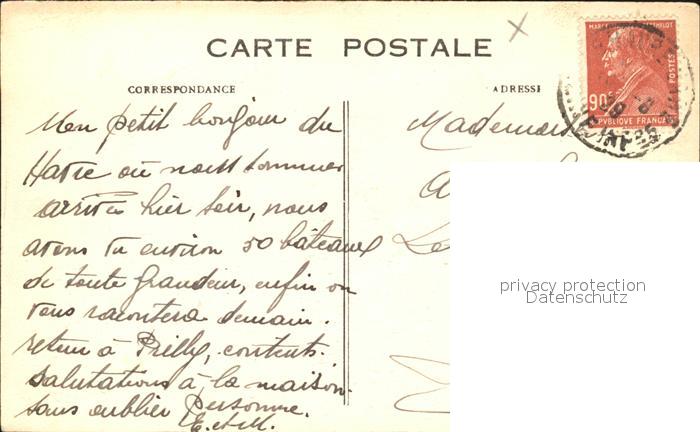 CARTE POSTALE
CORRESPONDANCE
ADRESSE
90c
POSTES
REPVBLIQUE FRANCAISE
Mon petit bonjour du
Havre où nous sommes
arrivés hier soir, nous
avons vu environ 50 bâteaux
de toute grandeur, enfin on
vous racontera demain.
retour à Prilly, contents.
Salutations à la maison
sans oublier Personne.
E. et M.
Mademoi
privacy protection
Datenschutz